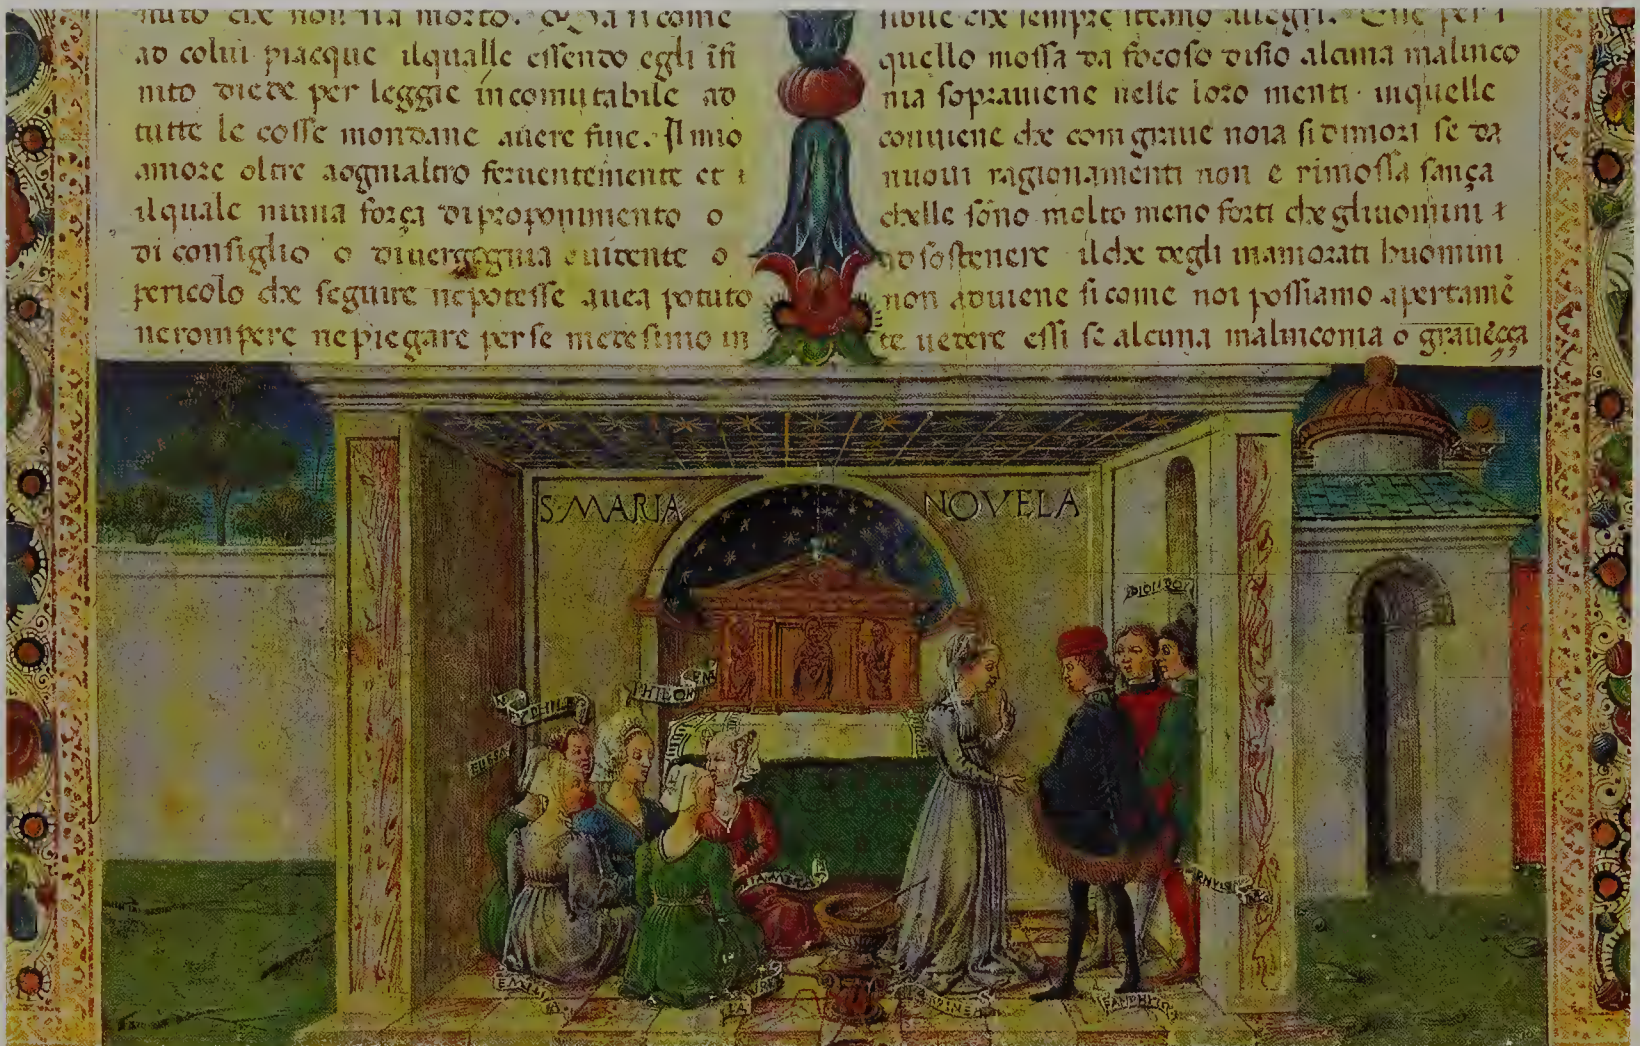 ad colui piacque ilqualle essendo egli ifi
nito diede per leggie incomutabile ad
tutte le cosse mondane auere fine. Il mio
amore oltre aognialtro feruentemente et
ilquale niuna força diproponimento o
di consiglio o diuergognia euidente o
pericolo che seguire nepotesse auea potuto
nerompere nepiegare perse medesimo in
quello mossa da focoso disio alcuna malinco
nia sopraviene nelle loro menti inquelle
conuiene che com graue noia si dimori se da
nuoui ragionamenti non e rimossa sança
chelle sono molto meno forti che gliuomini
adsostenere ilche degli inamorati huomini
non aduiene si come noi possiamo apertamē
te uedere essi se alcuna malinconia o graueçça
S·MARIA NOVELA
DIONEO
PHILOM
EM
PAMPHYLO